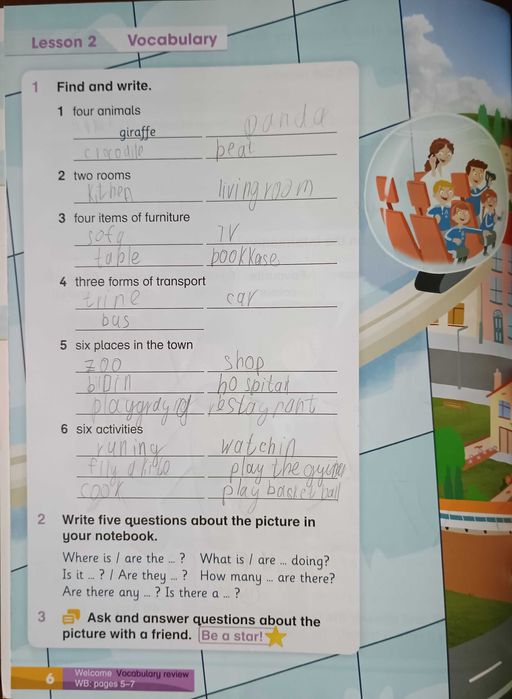 Lesson 2 Vocabulary
1 Find and write.
1 four animals
giraffe panda
crocodile beat
2 two rooms
kithen living room
3 four items of furniture
sofa TV
table bookkase
4 three forms of transport
trine car
bus
5 six places in the town
zoo shop
bildin hospital
restaurant
6 six activities
runing watchin
play the
cook play basketball
2 Write five questions about the picture in
your notebook.
Where is / are the ... ? What is / are ... doing?
Is it ... ? / Are they ... ? How many ... are there?
Are there any ... ? Is there a ... ?
3 Ask and answer questions about the
picture with a friend. Be a star!
6 Welcome Vocabulary review
WB: pages 5–7